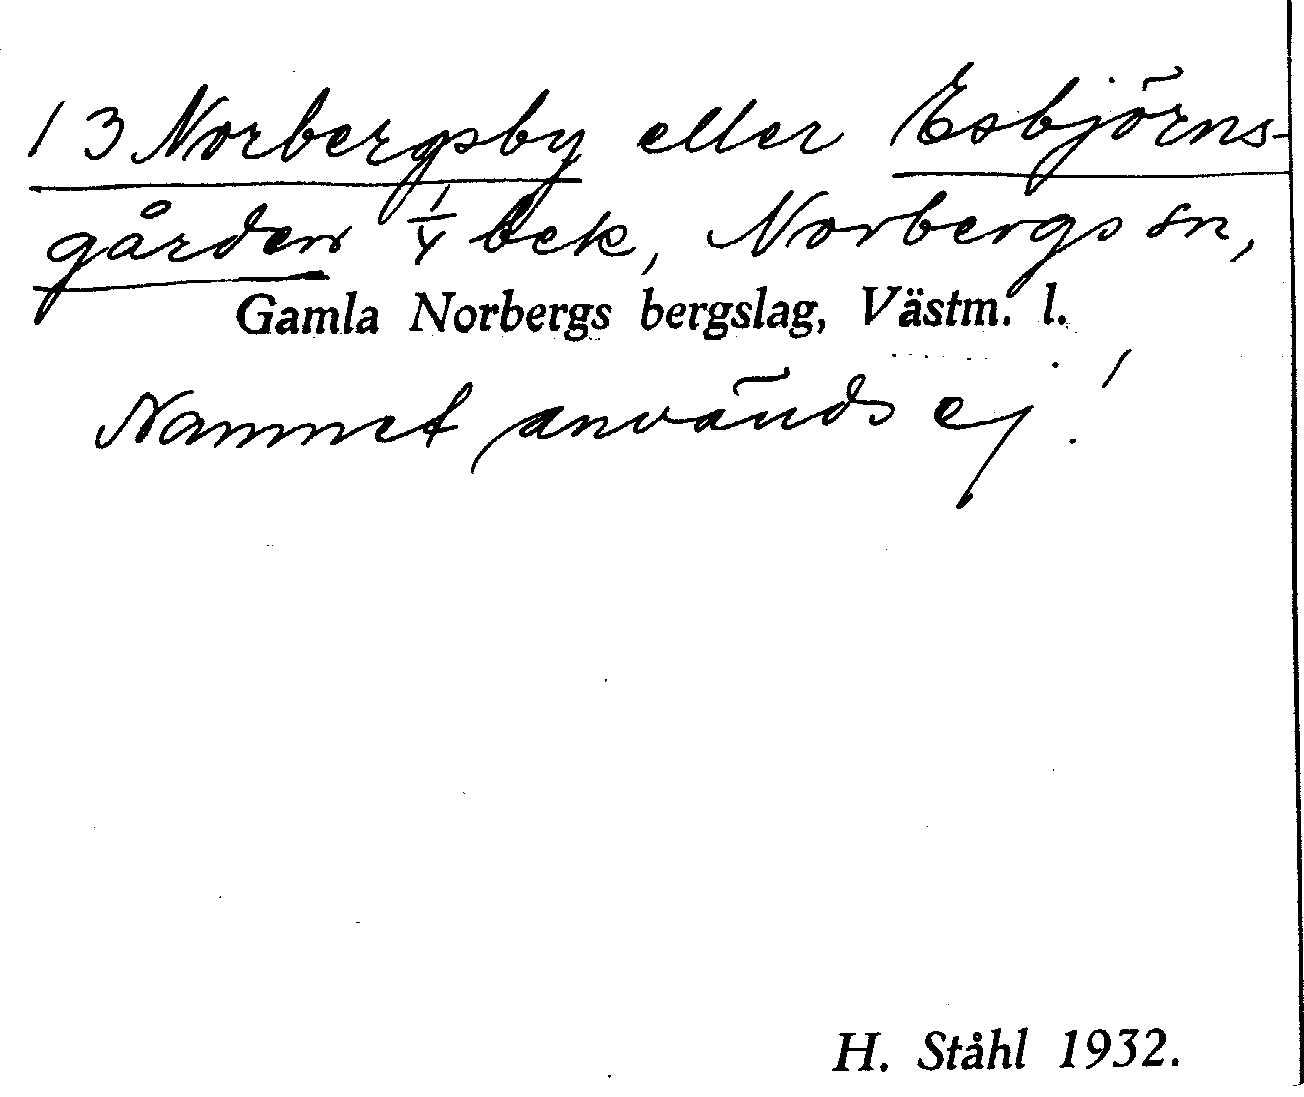 13 Norbergsby eller Esbjörns-
gården 1/4 bek, Norbergs sn,
Gamla Norbergs bergslag, Västm. l.
Namnet användes ej!
H. Ståhl 1932.